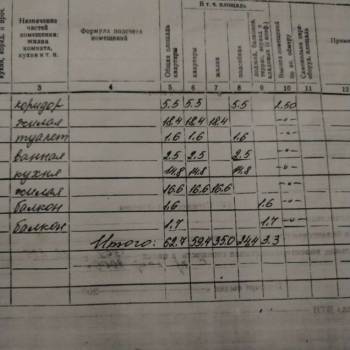 В т. ч. площадь
Назначение частей помещения: жилая комната, кухня и т. п.
Формула подсчета помещений
Общая площадь квартиры
квартиры
жилая
подсобная
3 4 5 6 7 8 9 10 11 12
коридор 5.5 5.5 5.5 2.50
жилая 18.4 18.4 18.4 -"-
туалет 1.6 1.6 1.6 -"-
ванная 2.5 2.5 2.5 -"-
кухня 14.8 14.8 14.8 -"-
жилая 16.6 16.6 16.6 -"-
балкон 1.6 1.6 -"-
балкон 1.7 1.7 -"-
Итого: 62.7 59.4 35.0 24.4 3.3